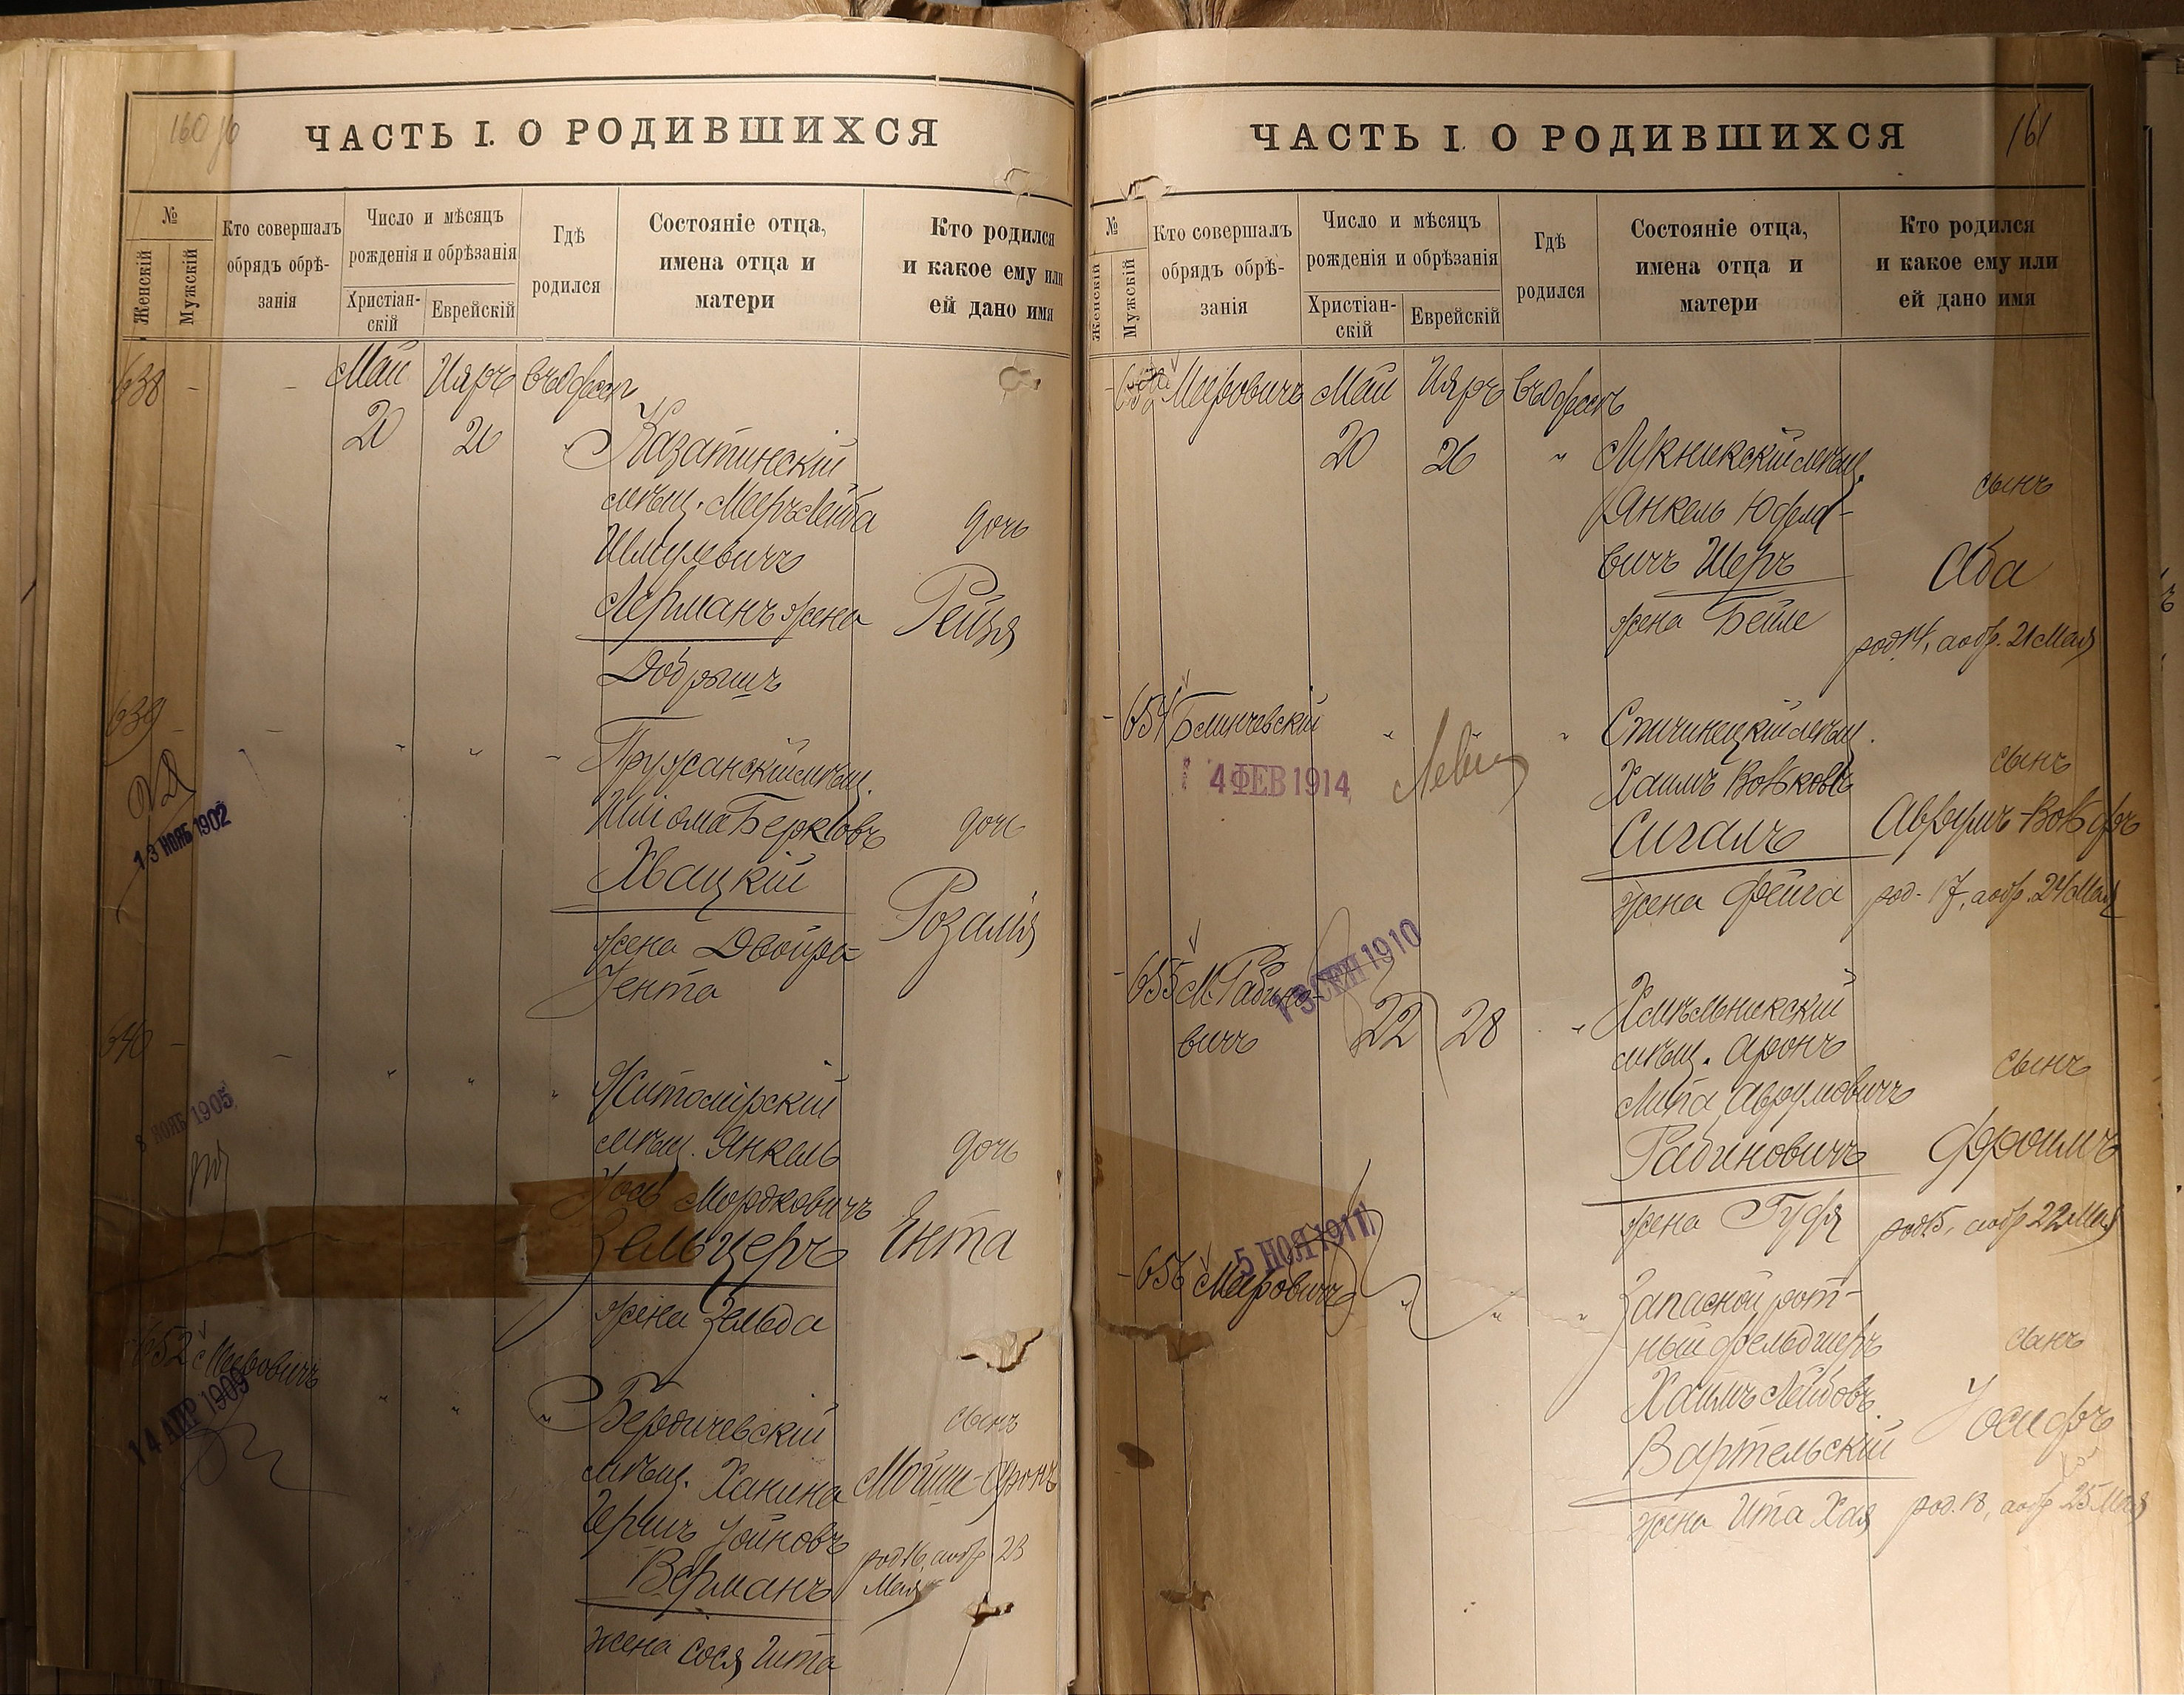 160 об
ЧАСТЬ I. О РОДИВШИХСЯ
№
Женскій
Мужскій
Кто совершалъ
обрядъ обрѣ-
занія
Число и мѣсяцъ
рожденія и обрѣзанія
Христіан-
скій
Еврейскій
Гдѣ
родился
Состояніе отца,
имена отца и
матери
Кто родился
и какое ему или
ей дано имя
638 - - Май Ияръ въ Одессѣ
20 26
Казатинскій
мѣщ. Мееръ Лейба
Шмулевичъ
Лерманъ жена
Добрышъ
дочь
Рейзя
639 - - " " "
13 НОЯБ 1902
Пружанскій мѣщ.
Шліома Берковъ
Хвацкій
жена Двойра-
Iента
дочь
Розалія
640 - - " " "
8 НОЯБ 1905
Житомірскій
мѣщ. Янкель
Iось Мордковичъ
Зельцеръ
жена Зельда
дочь
Ента
652 Мееровичъ " " "
14 АПР 1909
Бердичевскій
мѣщ. Ханина
Гершъ Iойновъ
Верманъ
жена Сося Ита
сынъ
Мойше-Аронъ
род. 16, а обр. 23
Мая
161
ЧАСТЬ I. О РОДИВШИХСЯ
№
Женскій
Мужскій
Кто совершалъ
обрядъ обрѣ-
занія
Число и мѣсяцъ
рожденія и обрѣзанія
Христіан-
скій
Еврейскій
Гдѣ
родился
Состояніе отца,
имена отца и
матери
Кто родился
и какое ему или
ей дано имя
- Мееровичъ Май Ияръ въ Одессѣ
20 26 "
Лукникскій мѣщ.
Янкель Юдело-
вичъ Шеръ
жена Бейле
сынъ
Аба
род. 14, а обр. 21 Мая
- 654 Блинчевскій " "
4 ФЕВ 1914
Хаимъ Вольковъ
Сигалъ
жена Фейга
сынъ
Аврумъ-Вольфъ
род. 17, а обр. 24 Мая
- 655 М. Рабино-
вичъ 22 28 "
13 СЕН 1910
Хмѣльникскій
мѣщ. Аронъ
Липа Аврумовичъ
Рабиновичъ
жена
сынъ
Фроимъ
род. 15, а обр. 22 Мая
- 656 Мееровичъ " " "
5 НОЯ 1911
Запасной рот-
ный фельдшеръ
Хаимъ Лейбовъ
Вартельскій
жена Ита Хая
сынъ
Iосифъ
род. 18, а обр. 25 Мая